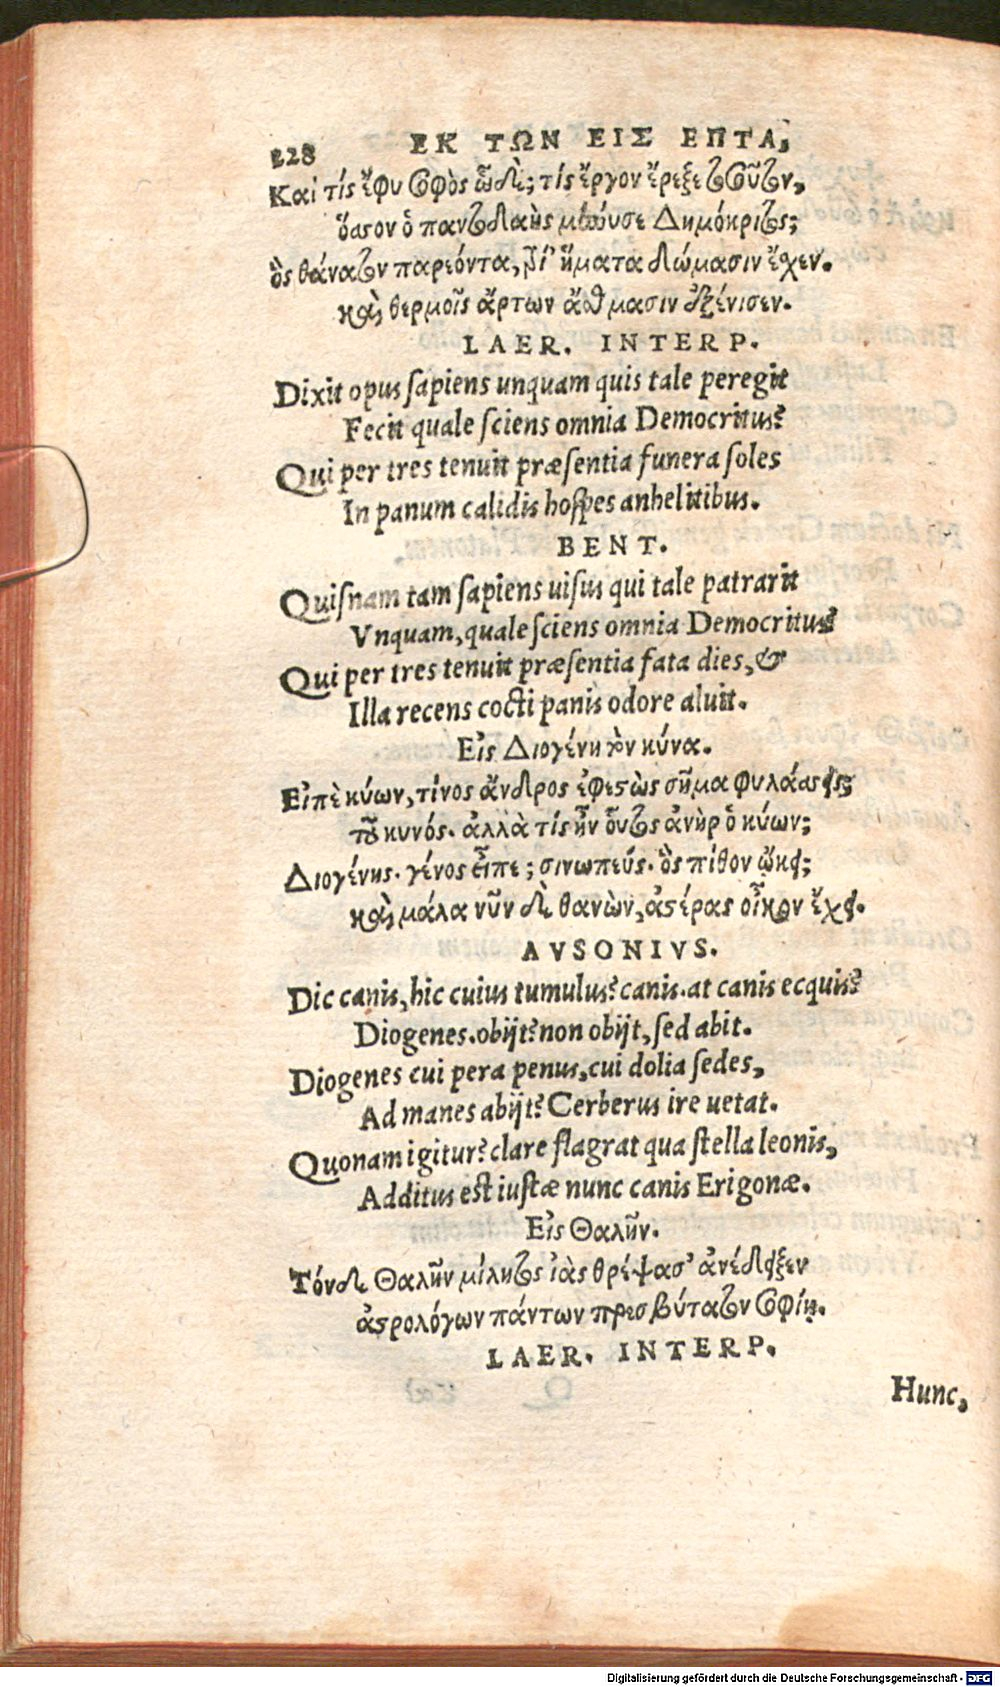 228 ΕΚ ΤΩΝ ΕΙΣ ΕΠΤΑ,
Καί τίς ἔφυ σοφὸς ὧδε; τίς ἔργον ἔρεξε τοσοῦτον,
ὅσσον ὁ παντοδαὴς μήνυσε Δημόκριτος;
ὃς θάνατον παρεόντα, τρί' ἤματα δώμασιν ἔχεν.
καὶ θερμοῖς ἄρτων ἄσθμασιν ἐξένισεν.
LAER. INTERP.
Dixit opus sapiens unquam quis tale peregit
Fecit quale sciens omnia Democritus?
Qui per tres tenuit præsentia funera soles
In panum calidis hospes anhelitibus.
BENT.
Quisnam tam sapiens uisus qui tale patrarit
Vnquam, quale sciens omnia Democritus?
Qui per tres tenuit præsentia fata dies, &
Illa recens cocti panis odore aluit.
Εἰς Διογένη τὸν κύνα.
Εἰπὲ κύων, τίνος ἄνδρος ἐφεστὼς σῆμα φυλάσσεις;
τοῦ κυνός. ἀλλὰ τίς ἦν οὗτος ἀνὴρ ὁ κύων;
Διογένης. γένος εἶπε; σινωπεύς. ὃς πίθον ᾤκει;
καὶ μάλα νῦν δὲ θανὼν, ἀστέρας οἶκον ἔχει.
AVSONIVS.
Dic canis, hic cuius tumulus? canis. at canis ecquis?
Diogenes. obijt? non obijt, sed abit.
Diogenes cui pera penus, cui dolia sedes,
Ad manes abijt? Cerberus ire uetat.
Quonam igitur? clare flagrat qua stella leonis,
Additus est iustæ nunc canis Erigonæ.
Εἰς Θαλῆν.
Τόνδε Θαλῆν μίλητος ἰὰς θρέψασ' ἀνέδειξεν
ἀστρολόγων πάντων πρεσβύτατον σοφίῃ.
LAER. INTERP.
Hunc,
Digitalisierung gefördert durch die Deutsche Forschungsgemeinschaft - DFG